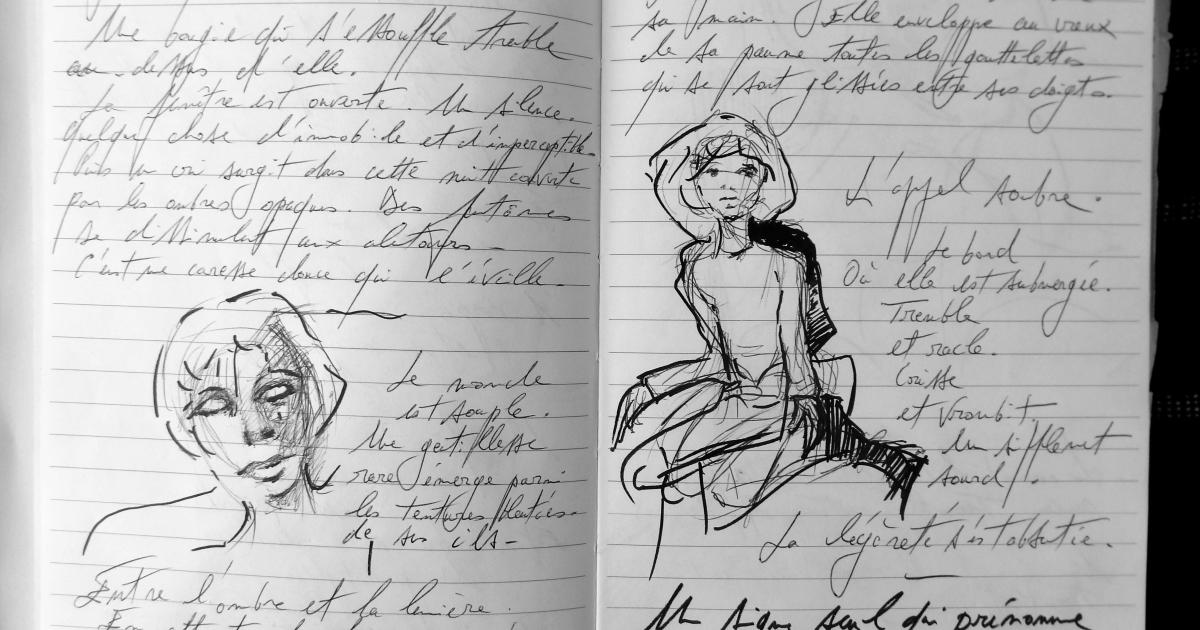 Une bougie qui s'essouffle tremble
au-dessus d'elle.
La fenêtre est ouverte. Un silence.
Quelque chose d'immobile et d'imperceptible.
Puis un cri surgit dans cette nuit couverte
par les ombres opaques. Des fantômes
se dissimulent aux alentours.
C'est une caresse douce qui l'éveille.
Le monde
est souple.
Une gentillesse
rare émerge parmi
les tentures bleutées
de ses cils.
Entre l'ombre et la lumière.
sa main. Elle enveloppe au creux
de sa paume toutes les gouttelettes
qui se sont glissées entre ses doigts.
L'appel sombre.
Le bord
Où elle est submergée.
Tremble
et racle.
Crisse
et vrombit.
Un sifflement
sourd.
La légèreté s'est
Un signe seul qui prénomme